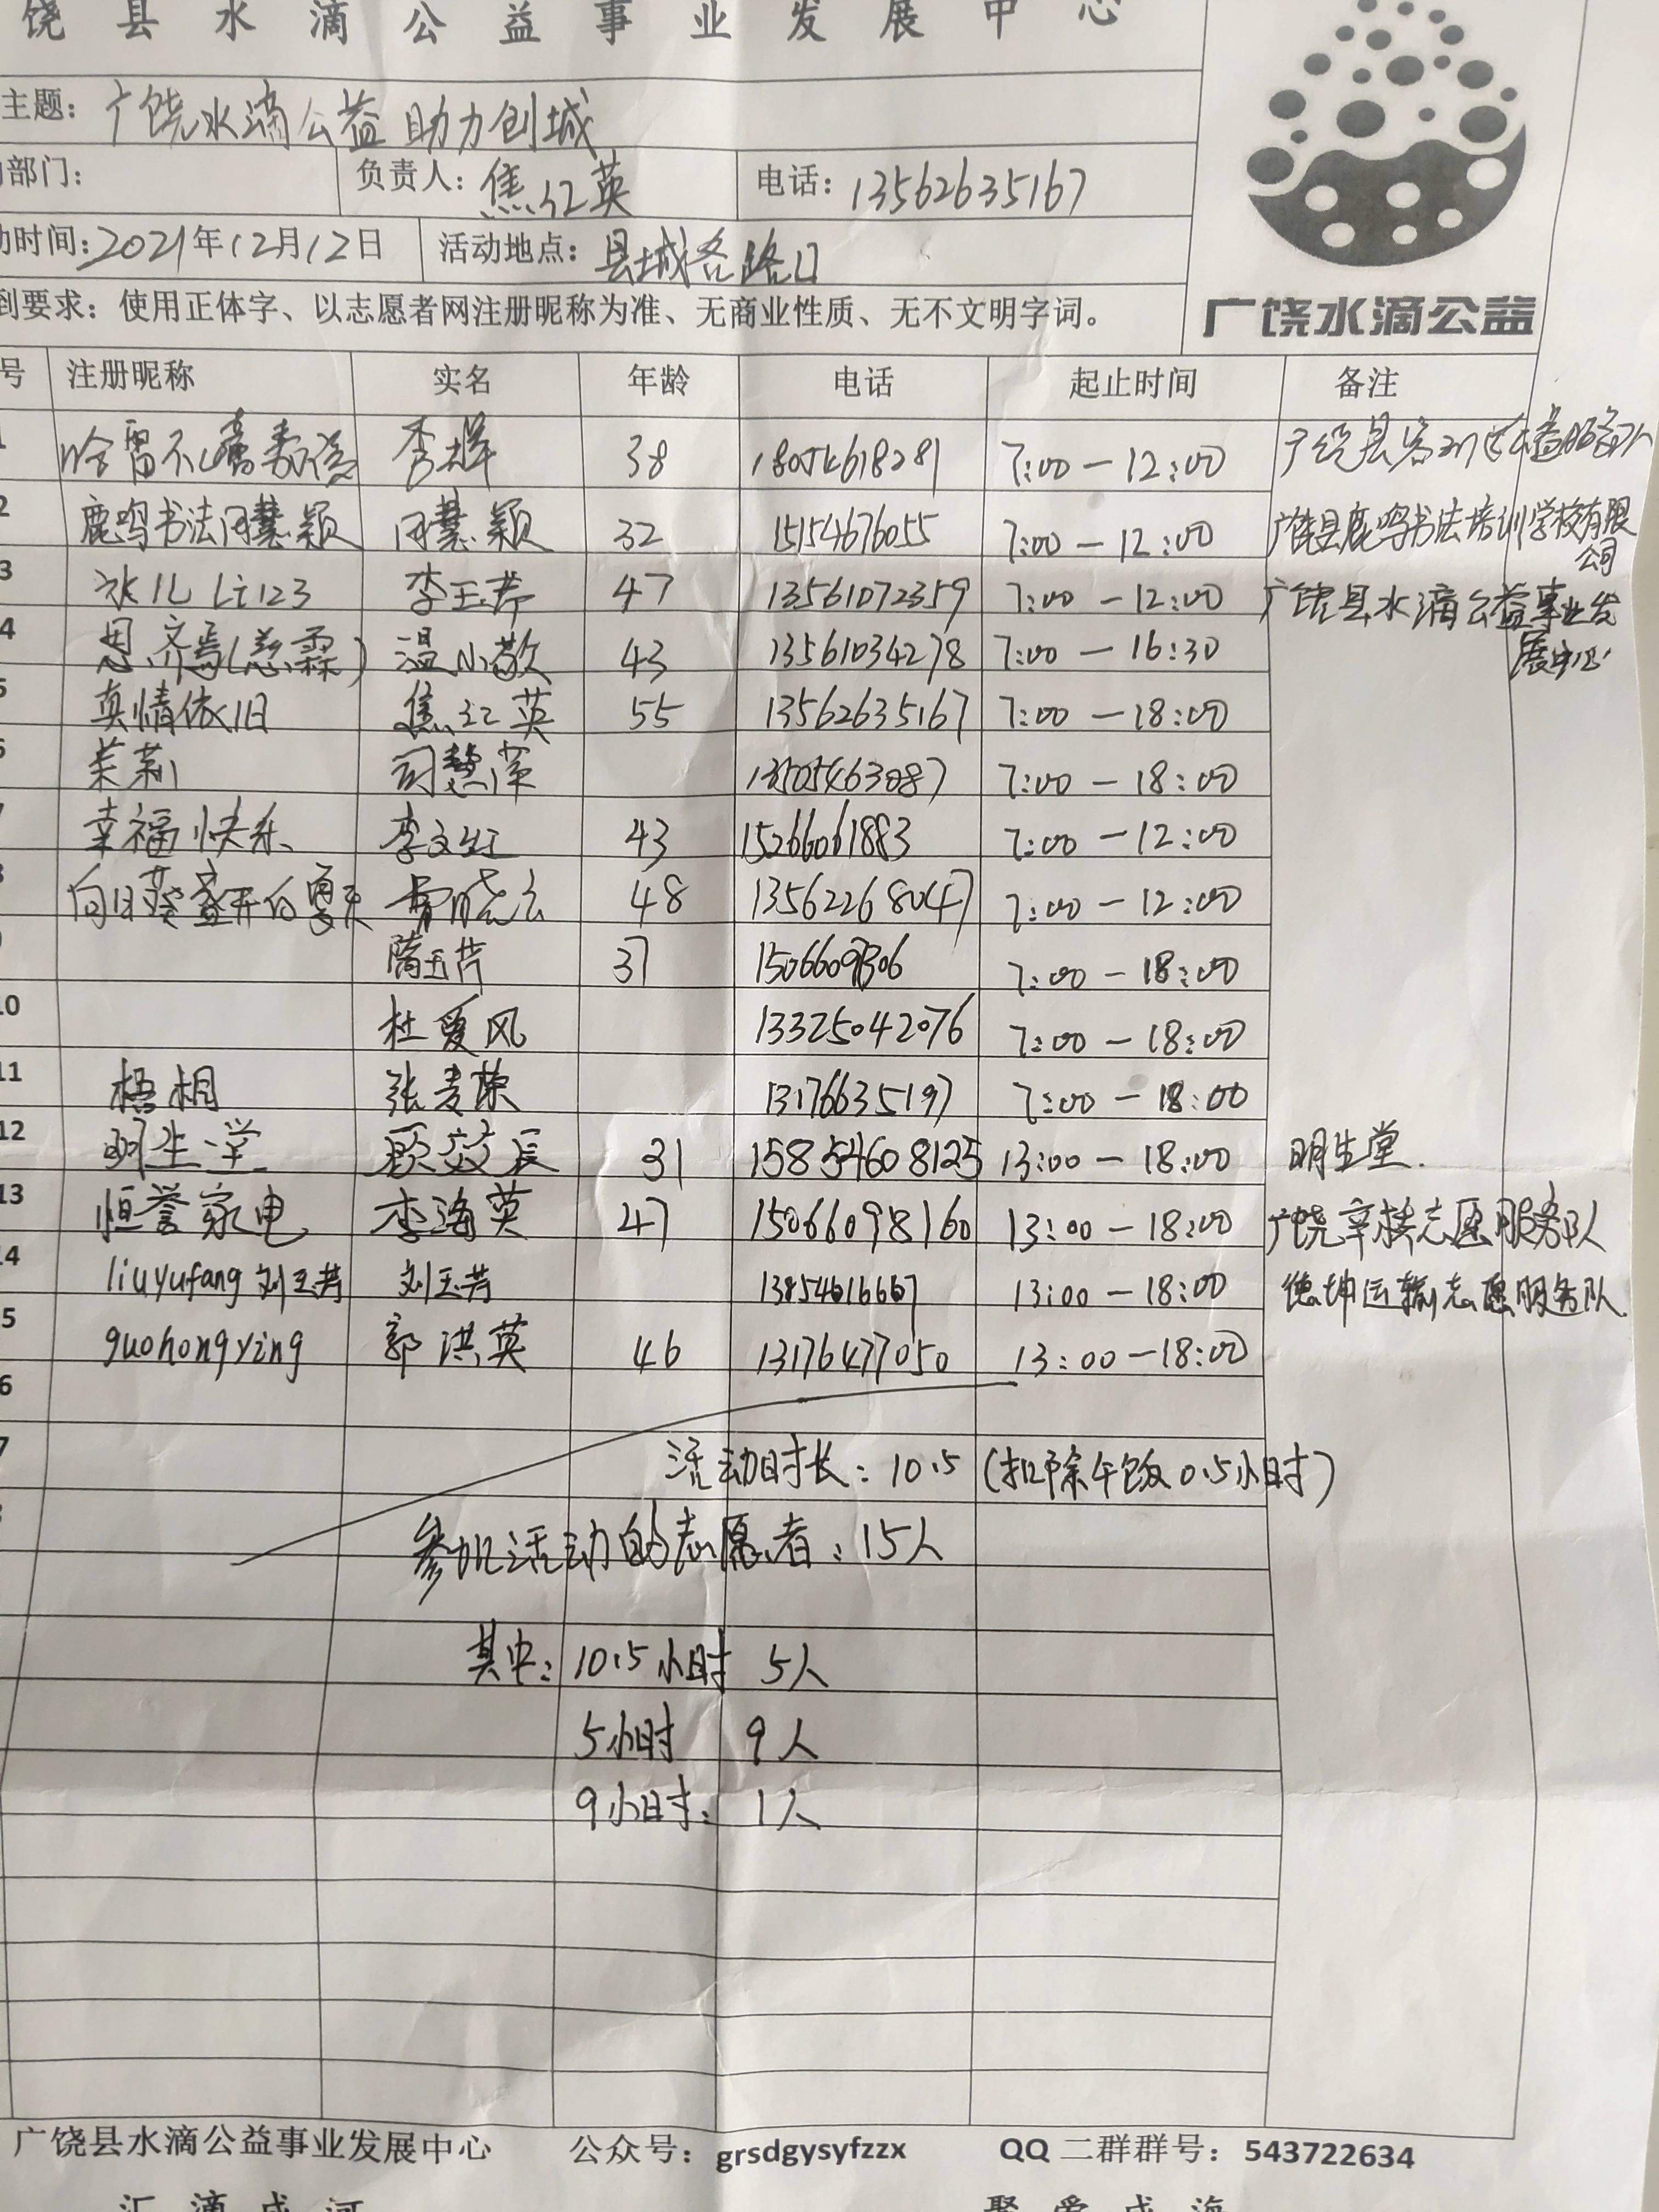 饶县水滴公益事业发展中心
主题：广饶水滴公益助力创城
部门： 负责人：焦红英 电话：13562635167
动时间：2021年12月12日 活动地点：县城各路口
到要求：使用正体字、以志愿者网注册昵称为准、无商业性质、无不文明字词。
广饶水滴公益
号 注册昵称 实名 年龄 电话 起止时间 备注
1 38 18054618281 7:00－12:00 广饶县
2 鹿鸣书法闫慧颖 闫慧颖 32 15154676055 7:00－12:00 广饶县鹿鸣书法培训学校有限
公司
3 冰儿Li123 李玉芹 47 13561072359 7:00－12:00 广饶县水滴公益事业发
4 思齐焉(慈霖) 温小敬 43 13561034278 7:00－16:30 展中心
5 真情依旧 焦红英 55 13562635167 7:00－18:00
6 茉莉 13505463087 7:00－18:00
7 幸福快乐 李文红 43 15266061883 7:00－12:00
8 向日葵盛开的夏天 48 13562268047 7:00－12:00
9 隋玉芹 37 7:00－18:00
10 杜爱风 13325042076 7:00－18:00
11 梧桐 张麦荣 13176635197 7:00－18:00
12 明生堂 顾效长 31 158854608125 13:00－18:00 明生堂.
13 恒誉家电 李海英 47 15066098160 13:00－18:00 广饶辛桥志愿服务队
14 liuyufang刘玉芳 刘玉芳 13854616667 13:00－18:00 德坤运输志愿服务队
5 guohongying 郭洪英 46 13176477050 13:00－18:00
6
7 活动时长：10.5（扣除午饭0.5小时）
参加活动的志愿者：15人
其中：10.5小时 5人
5小时 9人
9小时：1人
广饶县水滴公益事业发展中心 公众号：grsdgysyfzzx QQ 二群群号：543722634
汇滴成河 聚爱成海